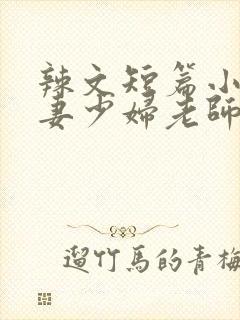 辣文短篇小
妻少婦老師
遛竹馬的青梅